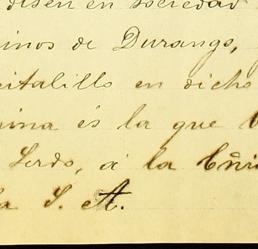 disen en sociedad
inos de Durango,
citalillo en dicho
mina és la que
Lerdo, á la
la S. A.